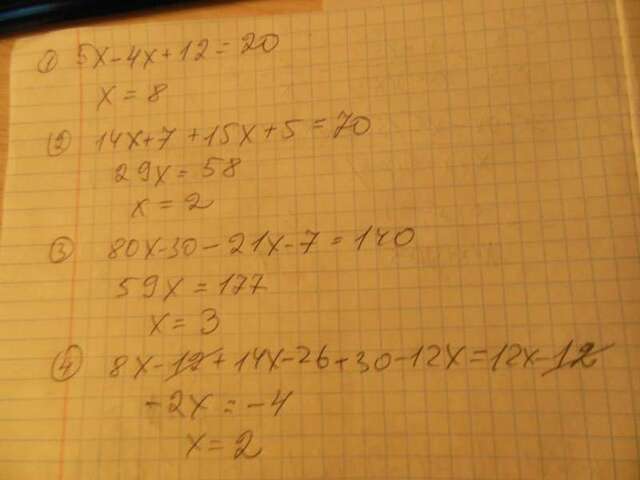 ① 5x-4x+12=20
x=8
② 14x+7+15x+5=70
29x=58
x=2
③ 80x-30-21x-7=140
59x=177
x=3
④ 8x-12+14x-26+30-12x=12x-12
-2x=-4
x=2